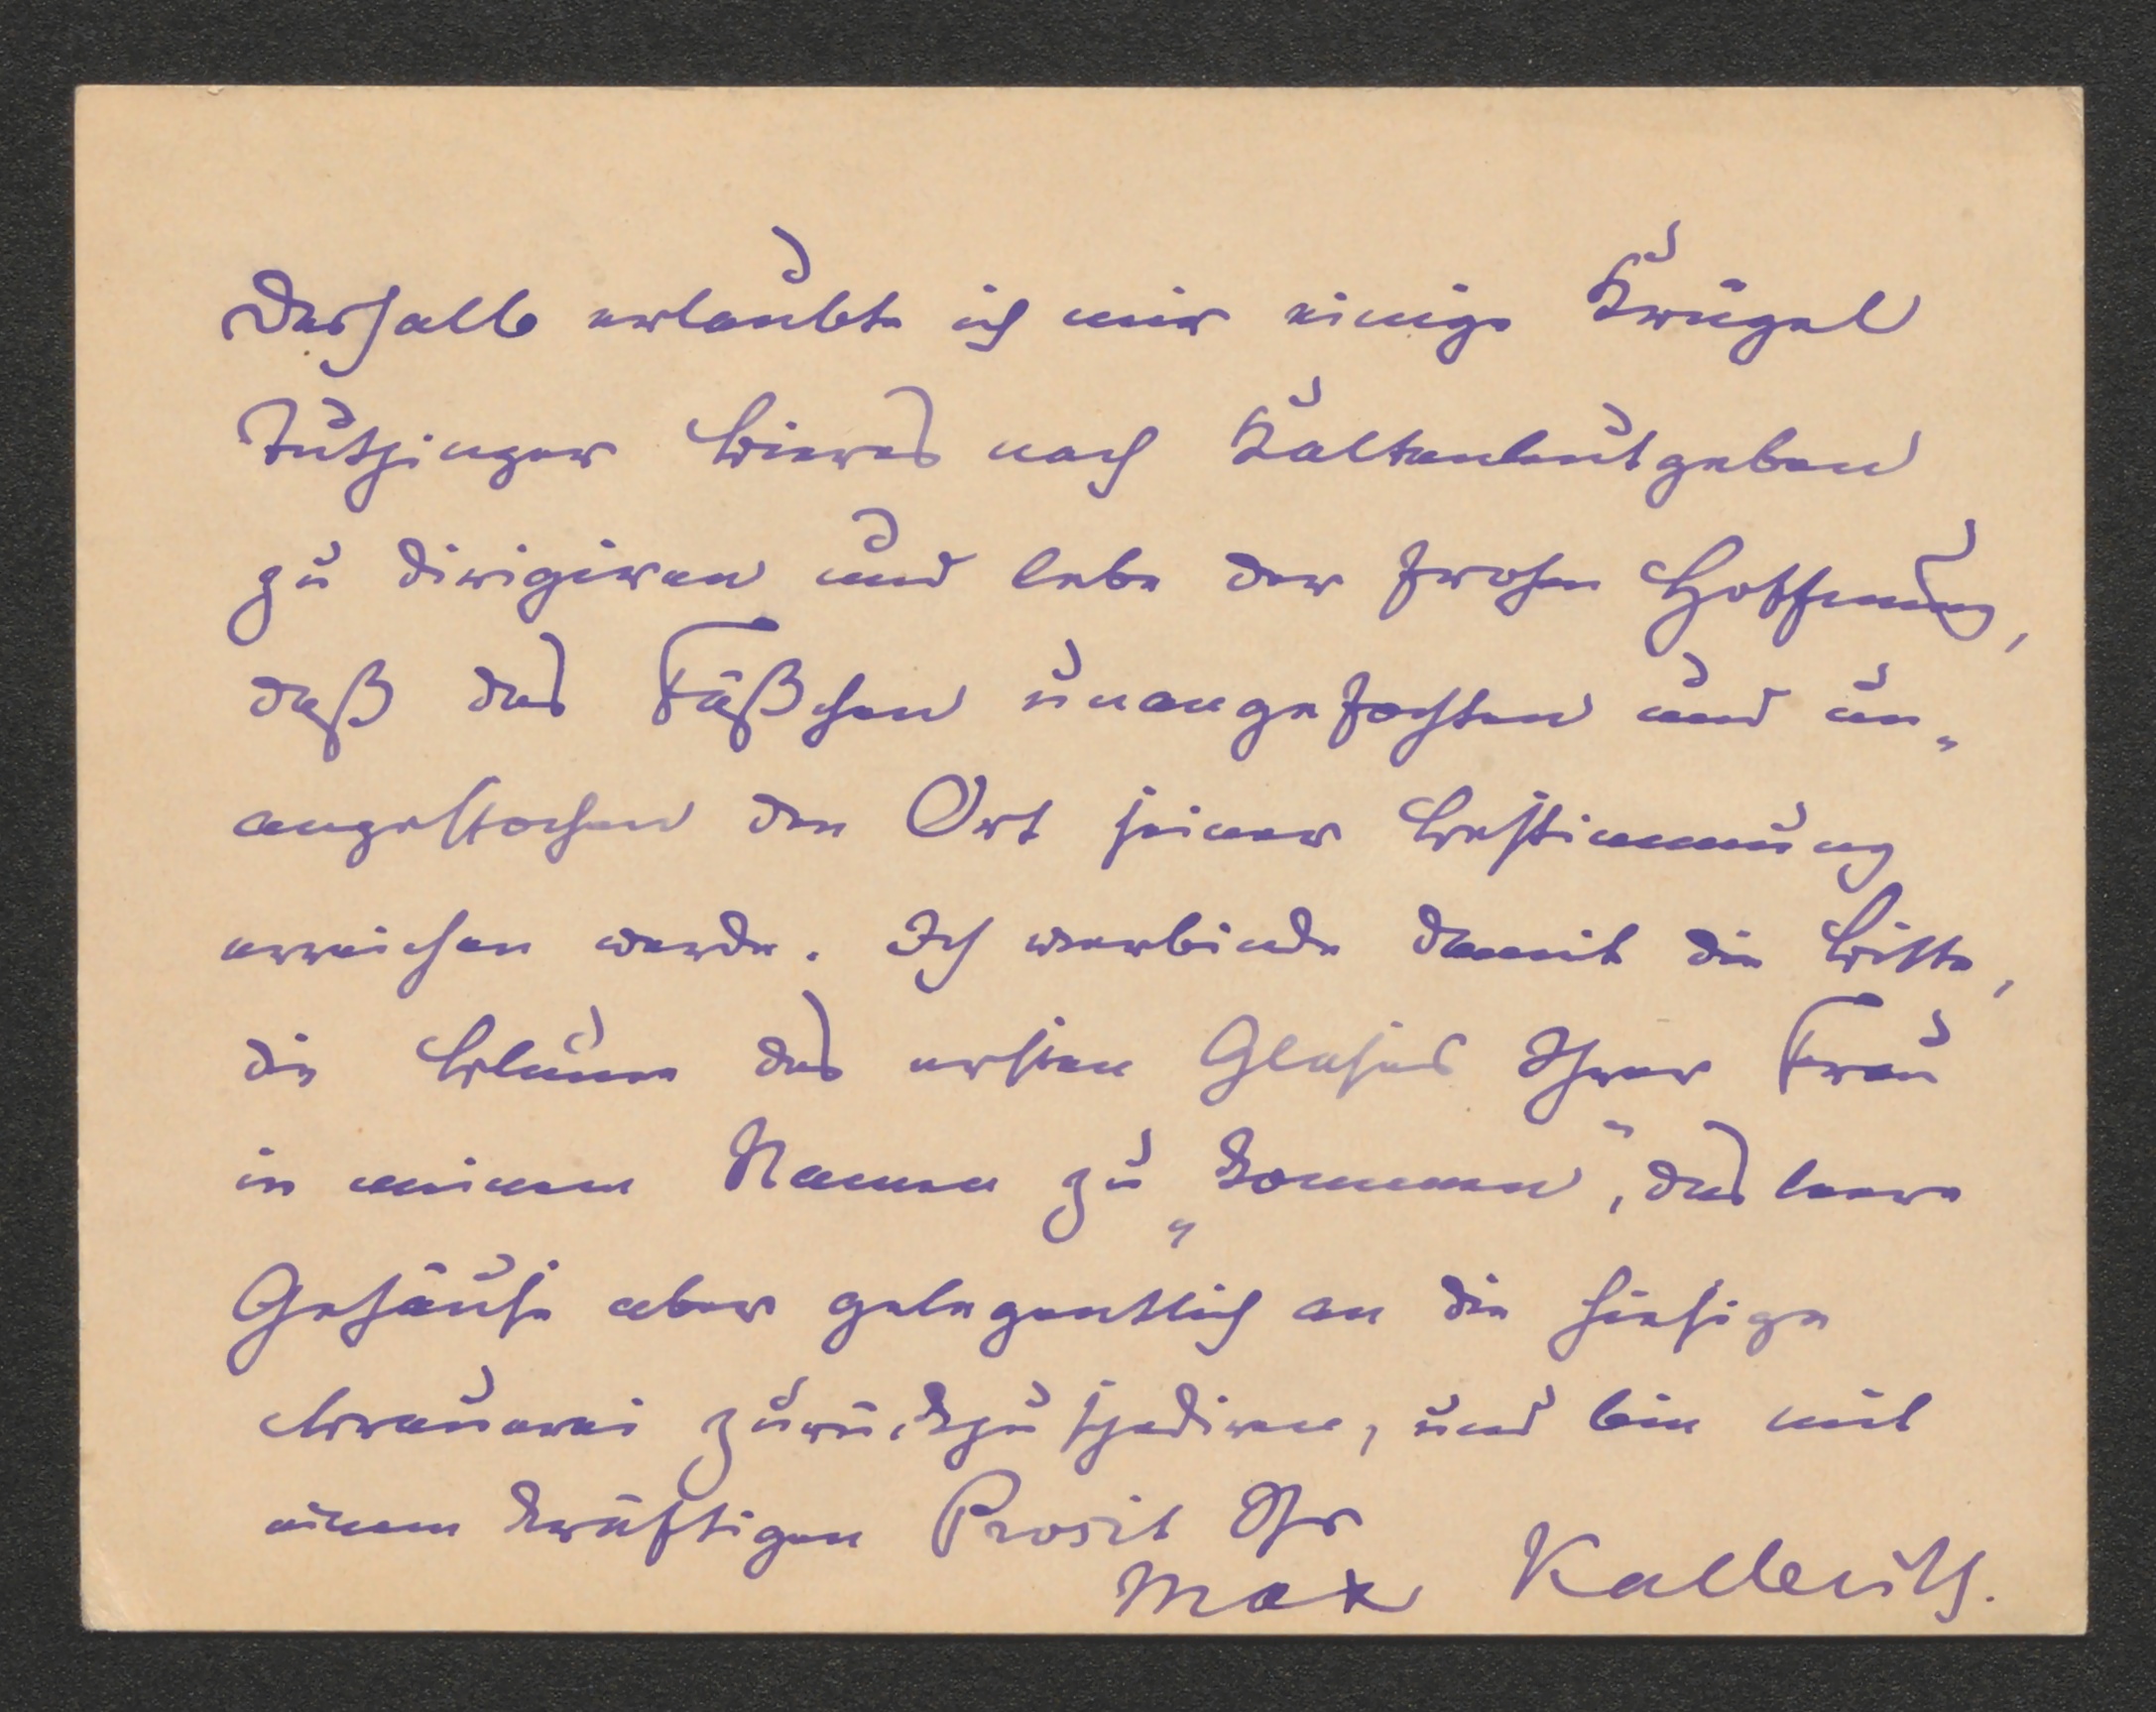 Deshalb erlaubte ich mir einige Krügel
Tutzinger Bieres nach Kaltenleutgeben
zu dirigiren und lebe der frohen Hoffnung,
daß das Fäßchen unangefochten und un„
angestochen den Ort seiner Bestimmung
erreichen werde. Ich verbinde damit die Bitte,
die Blume des ersten Glases Ihrer Frau
in meinem Namen zu „kommen“, das leere
Gehäuse aber gelegentlich an die hiesige
Brauerei zurückzuspediren, und bin mit
einem kräftigen Prosit Ihr
Max Kalbeck.